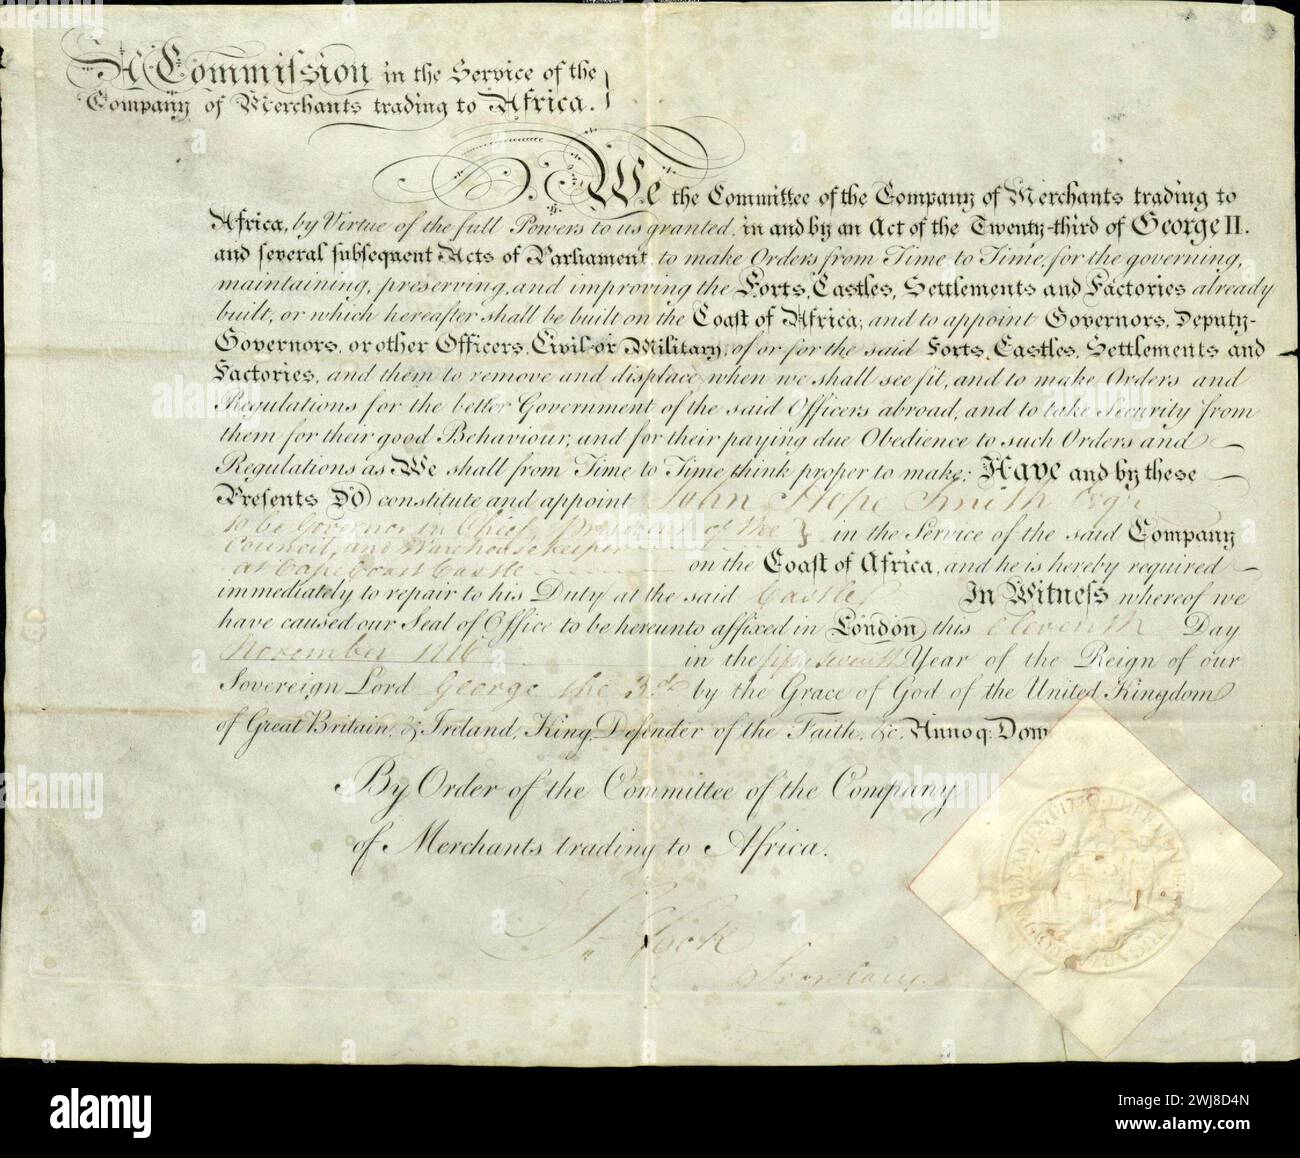 A Commission in the Service of the
Company of Merchants trading to Africa.
We the Committee of the Company of Merchants trading to
Africa, by Virtue of the full Powers to us granted, in and by an Act of the Twenty-third of George II.
and several subsequent Acts of Parliament, to make Orders from Time to Time, for the governing,
maintaining, preserving, and improving the Forts, Castles, Settlements and Factories already
built, or which hereafter shall be built on the Coast of Africa; and to appoint Governors, Deputy-
Governors, or other Officers, Civil or Military, of or for the said Forts, Castles, Settlements and
Factories, and them to remove and displace when we shall see fit, and to make Orders and
Regulations for the better Government of the said Officers abroad, and to take Security from
them for their good Behaviour; and for their paying due Obedience to such Orders and
Regulations as We shall from Time to Time think proper to make; Have and by these
Presents Do constitute and appoint John Hope Smith Esqr
to be Governor in Chief, President of the } in the Service of the said Company
Council, and Warehousekeeper
at Cape Coast Castle on the Coast of Africa, and he is hereby required
immediately to repair to his Duty at the said Castle In Witness whereof we
have caused our Seal of Office to be hereunto affixed in London this eleventh Day
November 1816 in the fifty seventh Year of the Reign of our
Sovereign Lord George the 3rd by the Grace of God of the United Kingdom
of Great Britain, & Ireland, King, Defender of the Faith, &c. Annoq: Dom
By Order of the Committee of the Company
of Merchants trading to Africa.
Cock
Secretary.
alamy
Image ID: 2WJ8D4N
www.alamy.com